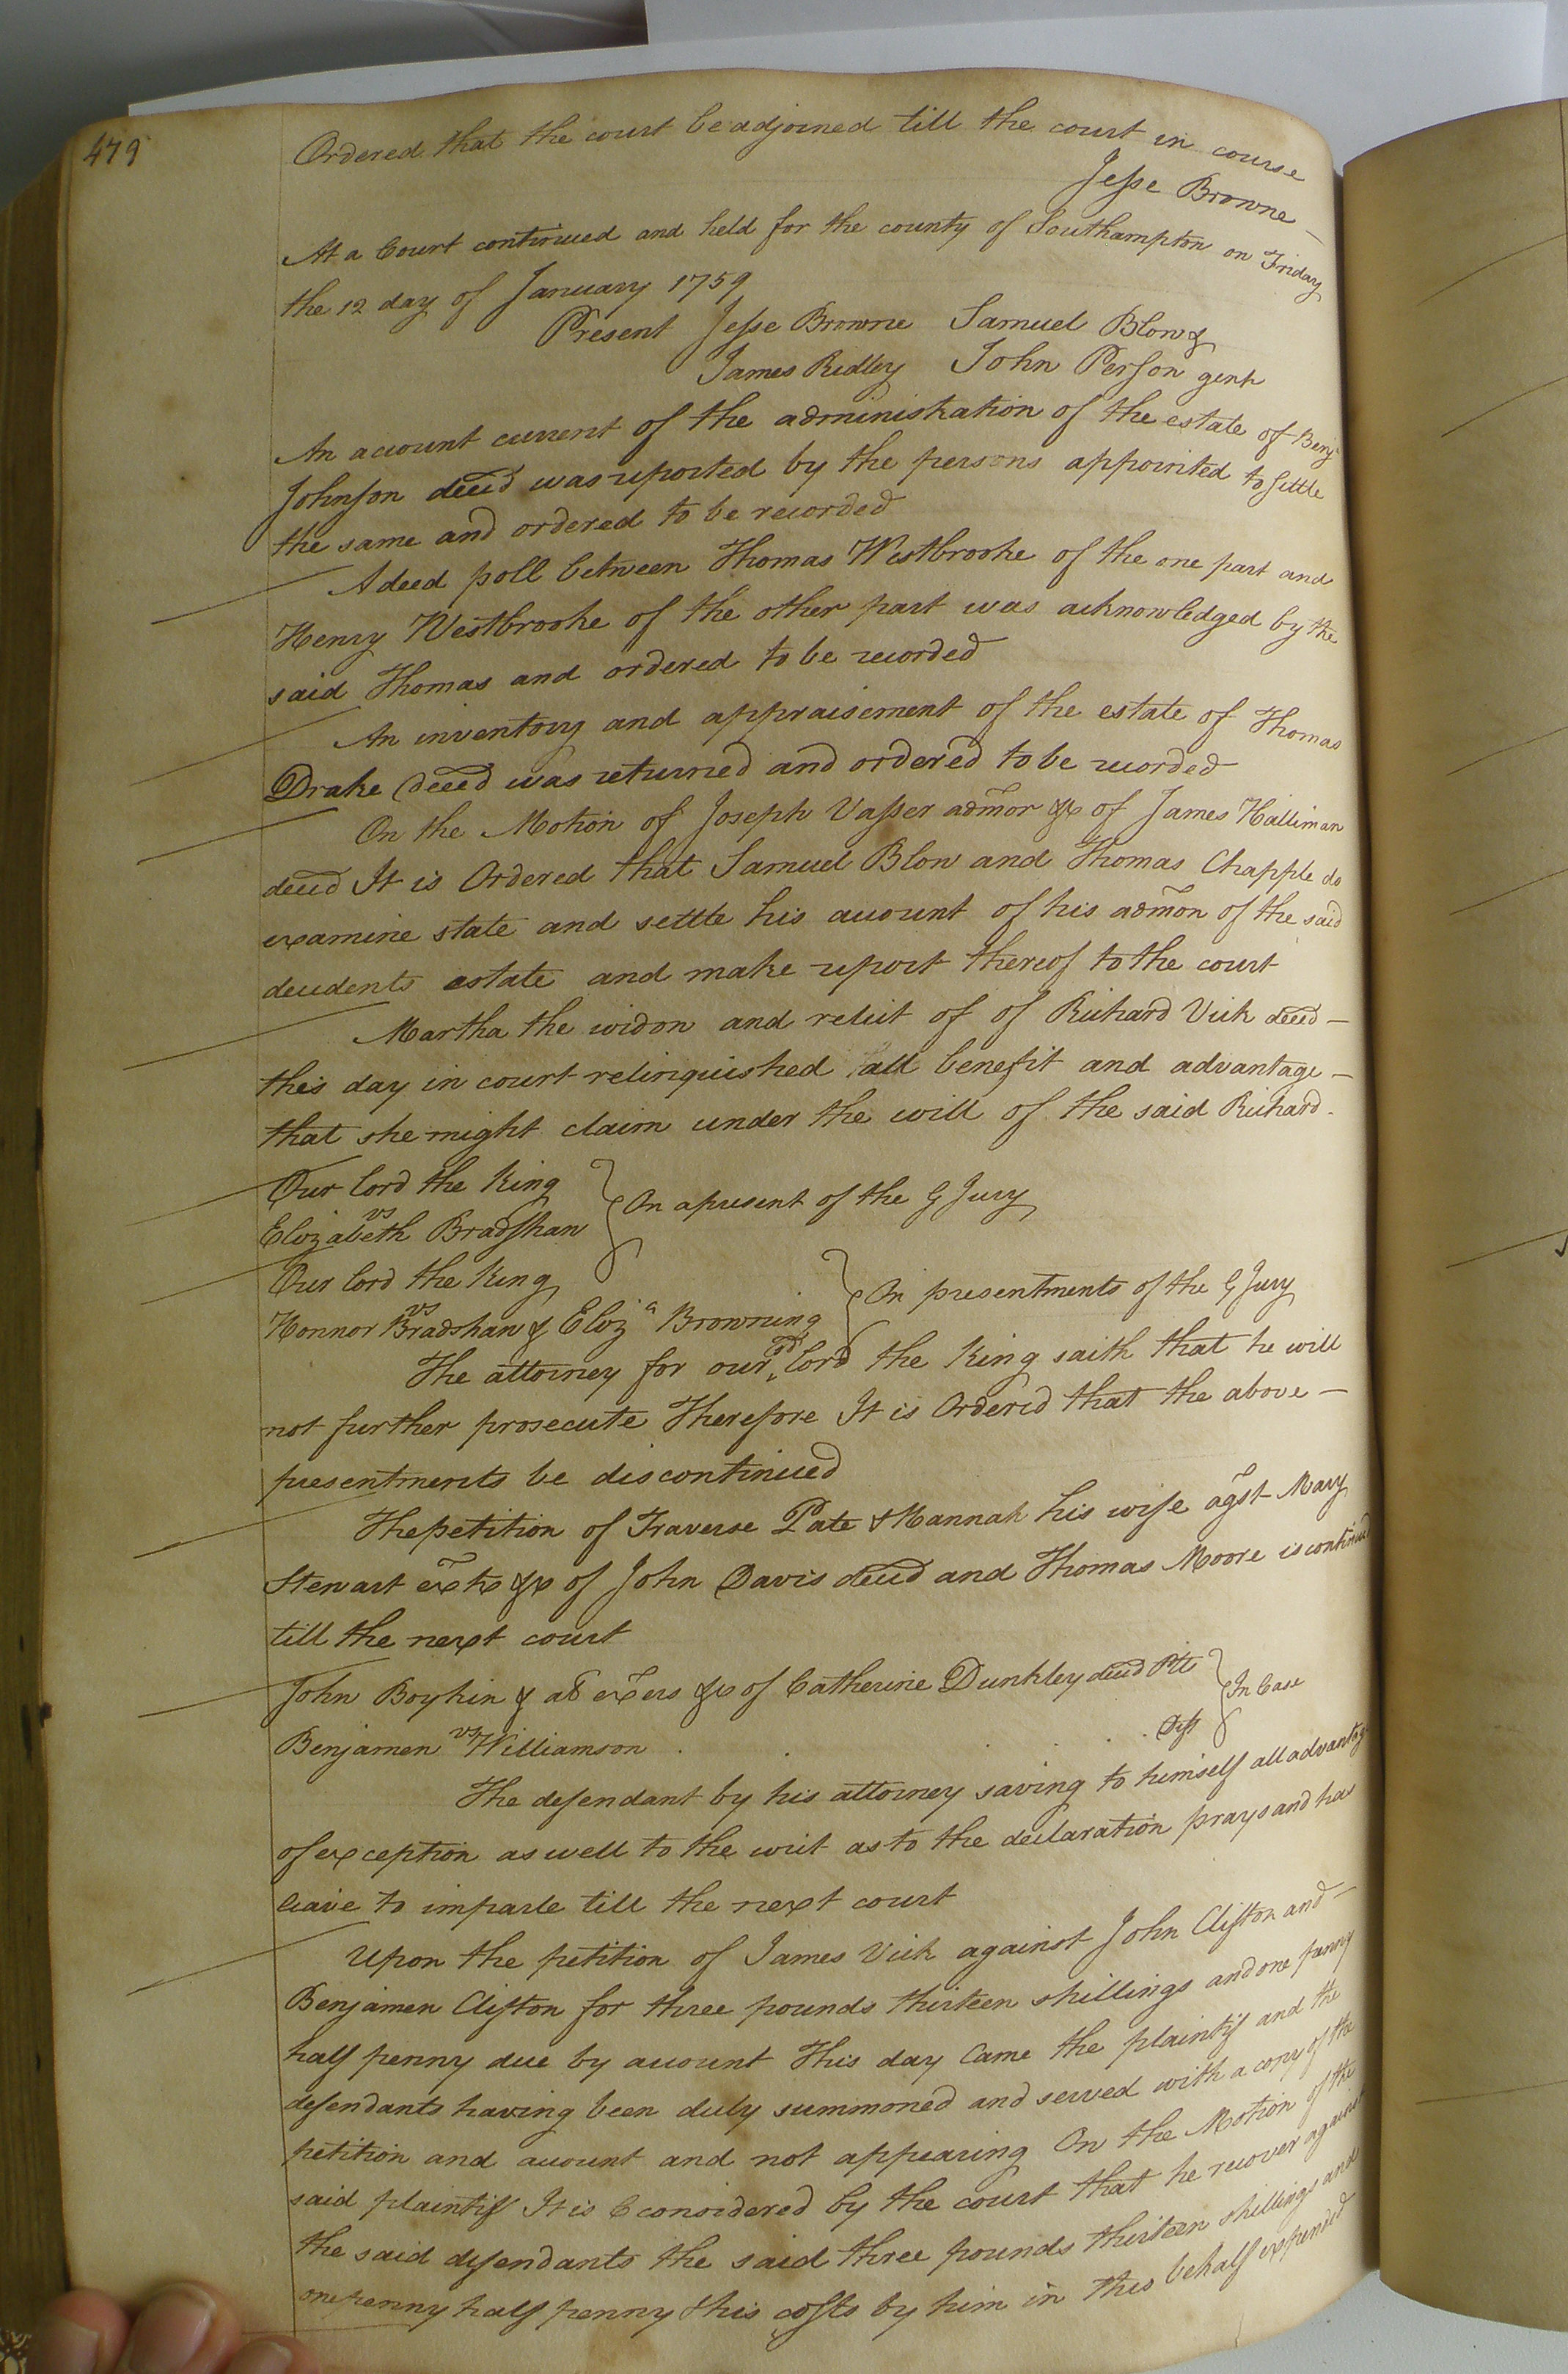 479
Ordered that the court be adjoined till the court in course
Jesse Browne
At a Court continued and held for the county of Southampton on Friday
the 12 day of January 1759
Present Jesse Browne Samuel Blow &
James Ridley John Person gent
An account current of the administration of the estate of Benj
Johnson decd was reported by the persons appointed to settle
the same and ordered to be recorded
A deed poll between Thomas Westbrooke of the one part and
Henry Westbrooke of the other part was acknowledged by the
said Thomas and ordered to be recorded
An inventory and appraisement of the estate of Thomas
Drake deced was returned and ordered to be recorded
On the Motion of Joseph Vasser admor &c of James Halliman
decd It is Ordered that Samuel Blow and Thomas Chapple do
examine state and settle his account of his admon of the said
decedents estate and make report thereof to the court
Martha the widow and relict of of Richard Vick deced
this day in court relinquished all benefit and advantage
that she might claim under the will of the said Richard
Our lord the King
vs
Elizabeth Bradshaw
On a present of the G Jury
Our lord the King
vs
Honnor Bradshaw & Eliza Browning
On presentments of the G Jury
The attorney for our sd lord the King saith that he will
not further prosecute Therefore It is Ordered that the above
presentments be discontinued
The petition of Traverse Pate & Hannah his wife agst Mary
Stewart extx &c of John Davis decd and Thomas Moore is continued
till the next court
John Boykin & al exers &c of Catherine Dunkley decd Plt
vs
In Case
Benjamen Williamson Deft
The defendant by his attorney saving to himself all advantage
of exception as well to the writ as to the declaration prays and has
leave to imparle till the next court
Upon the petition of James Vick against John Clifton and
Benjamen Clifton for three pounds thirteen shillings and one penny
half penny due by account This day Came the plaintif and the
defendants having been duly summoned and served with a copy of the
petition and account and not appearing On the Motion of the
said plaintif It is Cconsidered by the court that he recover against
the said defendants the said three pounds thirteen shillings and
one penny half penny & his costs by him in this behalf expended